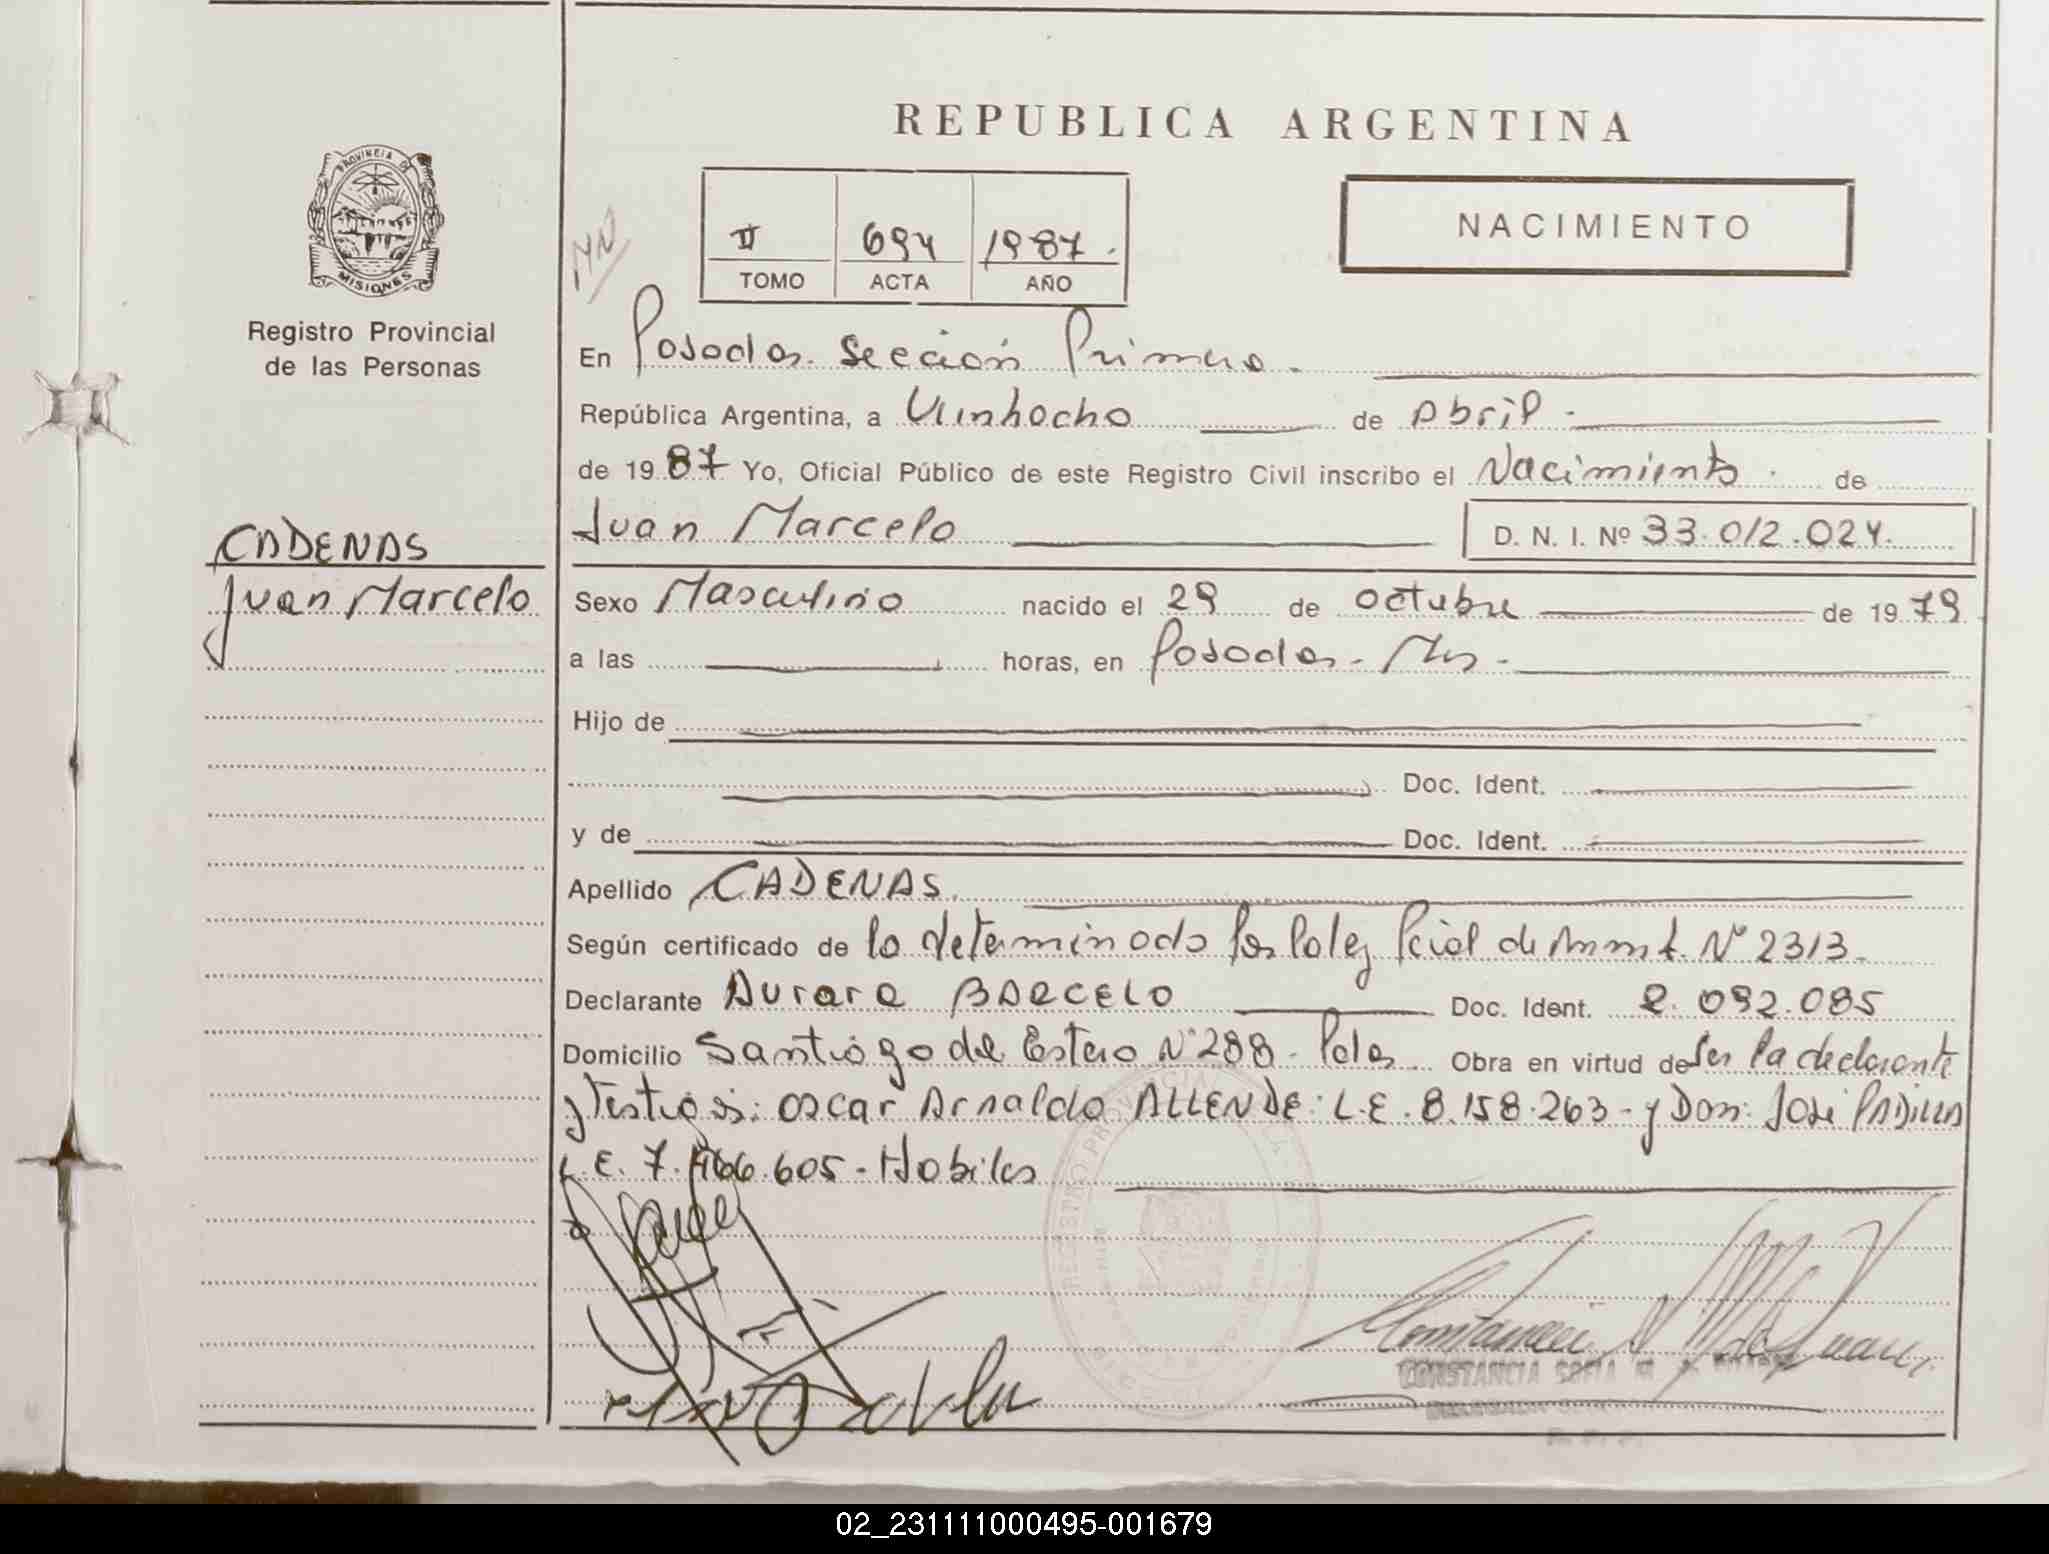 REPUBLICA ARGENTINA
PROVINCIA DE
MISIONES
Registro Provincial
de las Personas
CADENAS
Juan Marcelo
NACIMIENTO
II 694 1987.
TOMO ACTA AÑO
En Posadas. Sección Primera.
República Argentina, a Veinhocho de Abril.
de 1987 Yo, Oficial Público de este Registro Civil inscribo el Nacimiento. de
Juan Marcelo D. N. I. Nº 33.012.024.
Sexo Masculino nacido el 29 de octubre de 1979
a las horas, en Posadas. Mns.
Hijo de
Doc. Ident.
y de Doc. Ident.
Apellido CADENAS.
Según certificado de lo determinado por la ley Pcial de Amnt. Nº 2313.
Declarante Aurora BARCELO Doc. Ident. 2.092.085
Domicilio Santiago del Estero Nº 288 - Pdas. Obra en virtud de Ser la declarante
y Testigos: Oscar Arnaldo ALLENDE: L.E. 8.158.263 - y Don: José PADILLA
L.E. 7.466.605 - Habiles
REGISTRO PROVINCIAL
CONSTANCIA SOFIA
02_231111000495-001679